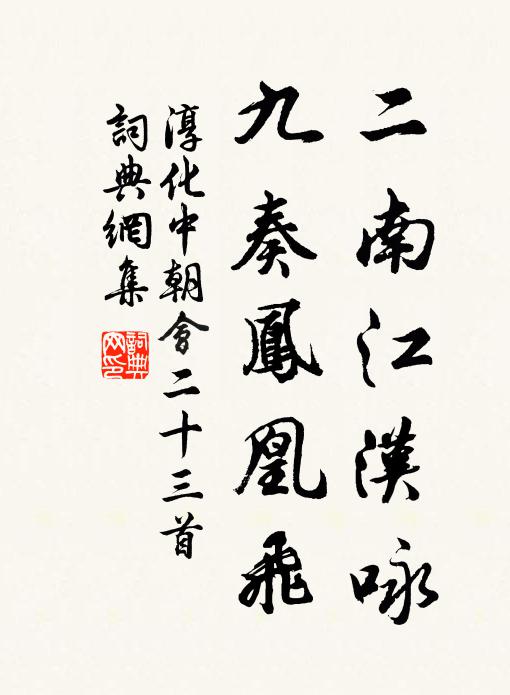 二南江漢咏
九奏鳳凰飛
淳化中朝會二十三首
詞典網集
詞典
网印